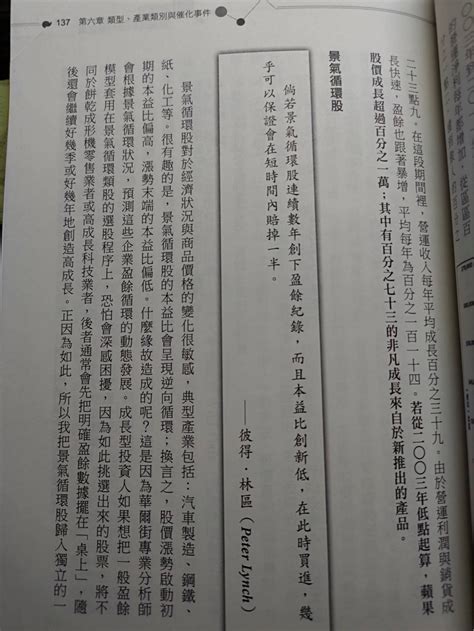 137 第六章 類型、產業類別與催化事件
二十三點九。在這段期間裡，營運收入每年平均成長百分之三十九。由於營運利潤與銷貨成
長快速，盈餘也跟著暴增，平均每年為百分之一百一十四。若從二〇〇三年低點起算，蘋果
股價成長超過百分之一萬；其中有百分之七十三的非凡成長來自於新推出的產品。
景氣循環股
倘若景氣循環股連續數年創下盈餘紀錄，而且本益比創新低，在此時買進，幾
乎可以保證會在短時間內賠掉一半。
——彼得·林區（Peter Lynch）
景氣循環股對於經濟狀況與商品價格的變化很敏感，典型產業包括：汽車製造、鋼鐵、
紙、化工等。很有趣的是，景氣循環股的本益比會呈現逆向循環；換言之，股價漲勢啟動初
期的本益比偏高，漲勢末端的本益比偏低。什麼緣故造成的呢？這是因為華爾街專業分析師
會根據景氣循環狀況，預測這些企業盈餘循環的動態發展。成長型投資人如果想把一般盈餘
模型套用在景氣循環類股的選股程序上，恐怕會深感困擾，因為如此挑選出來的股票，將不
同於餅乾成形機零售業者或高成長科技業者，後者通常會先把明確盈餘數據擺在「桌上」，隨
後還會繼續好幾季或好幾年地創造高成長。正因為如此，所以我把景氣循環股歸入獨立的一